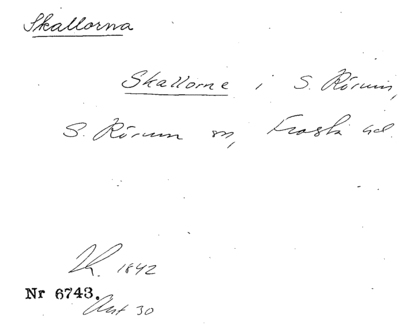 Skallorna
Skallorne i S. Rörum,
S. Rörum sn, Frosta hd.
Lh. 1842
Nr 6743.
Ant 30